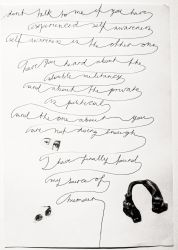 dont talk to me if you have
experienced self awareness
self awareness is the other one
have you heard about the
double militancy
and about the private
is political
and the one about you
are not doing enough
I have finally found
my source of